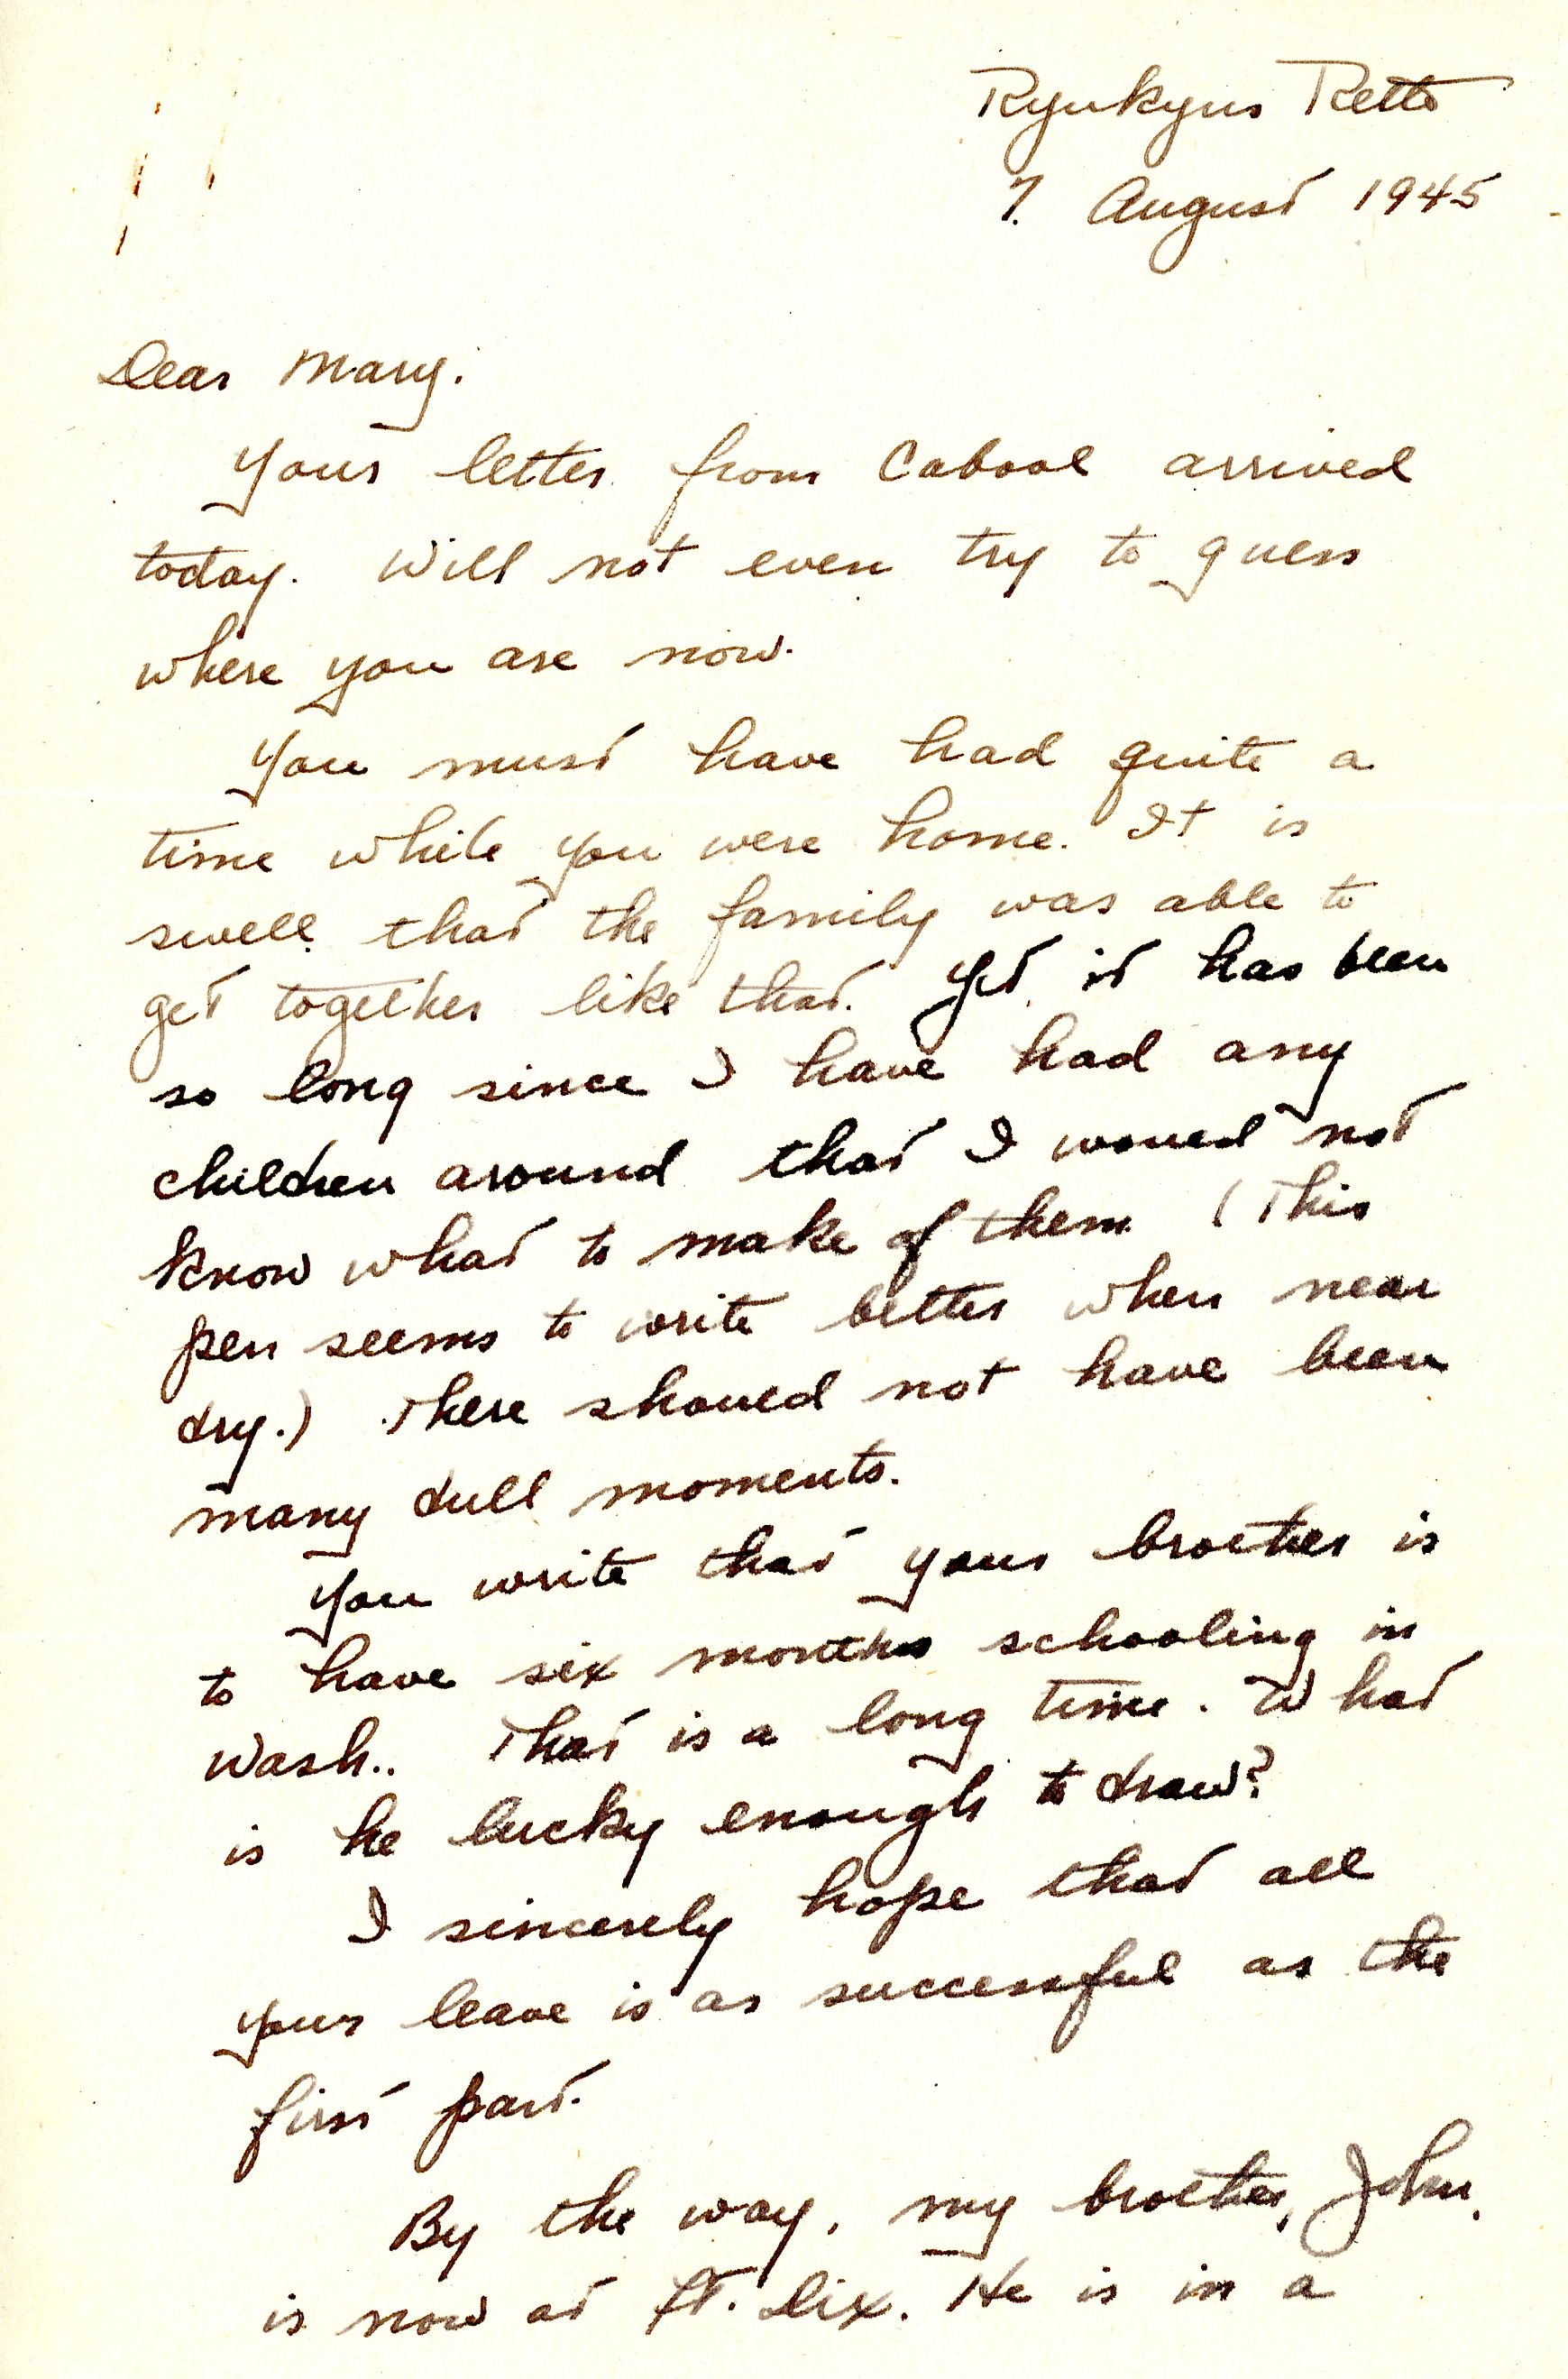 Ryukyus Retto
7. August 1945
Dear Mary.
Your letter from Cabool arrived
today. Will not even try to guess
where you are now.
You must have had quite a
time while you were home. It is
swell that the family was able to
get together like that. Yet it has been
so long since I have had any
children around that I would not
know what to make of them (This
pen seems to write better when near
dry.) There should not have been
many dull moments.
You write that your brother is
to have six months schooling in
Wash.. That is a long time. What
is he lucky enough to draw?
I sincerely hope that all
your leave is as successful as the
first part.
By the way, my brother, John,
is now at Ft. Dix. He is in a